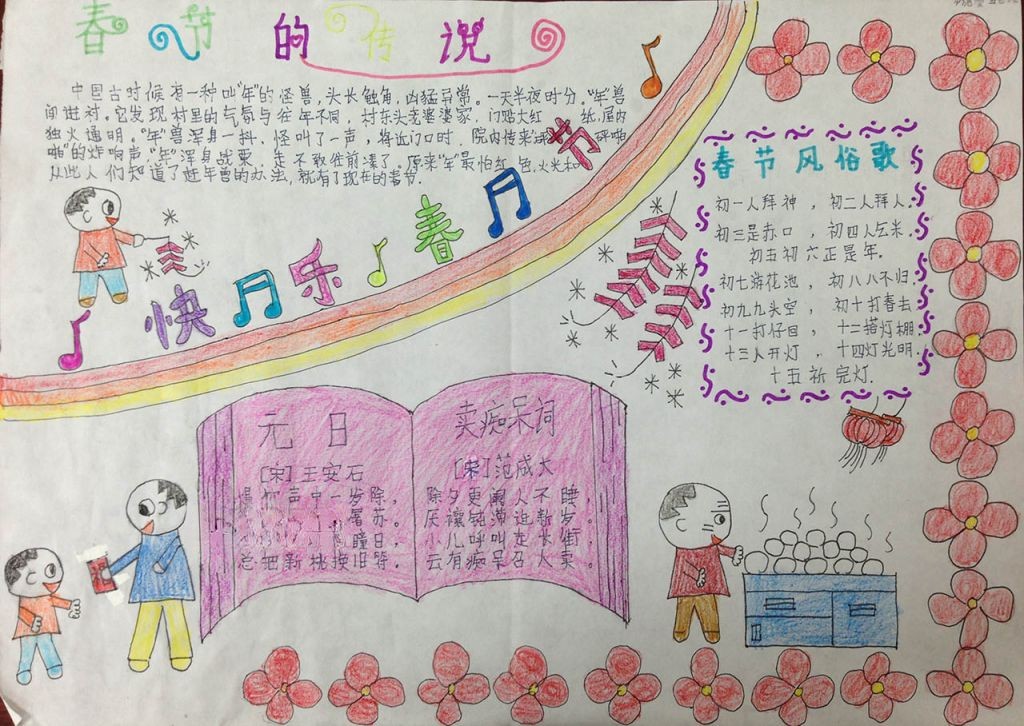 春节的传说
中国古时候有一种叫"年"的怪兽,头长触角,凶猛异常。一天半夜时分,"年"兽
闯进村。它发现村里的气氛与往年不同,村东头老婆婆家,门贴大红 纸,屋内
独火通明。"年"兽浑身一抖,怪叫了一声,将近门口时,院内传来 砰啪
啪"的炸响声,"年"浑身战栗,走不敢往前凑了。原来"年"最怕红色,火光和
从此人们知道了赶年兽的办法,就有了现在的春节.
快乐春节
春节风俗歌
初一人拜神,初二人拜人.
初三是赤口,初四人乞米.
初五初六正是年.
初七游花池,初八八不归.
初九九头空,初十打春去
十一打仔回,十二搭灯棚.
十三人开灯,十四灯光明.
十五祈完灯.
元日
[宋]王安石
声中一岁除,
屠苏。
曈日,
总把新桃换旧符。
卖痴呆词
[宋]范成大
除夕更阑人不睡,
厌禳钝滞迫新岁。
小儿呼叫走长街,
云有痴呆召人卖。